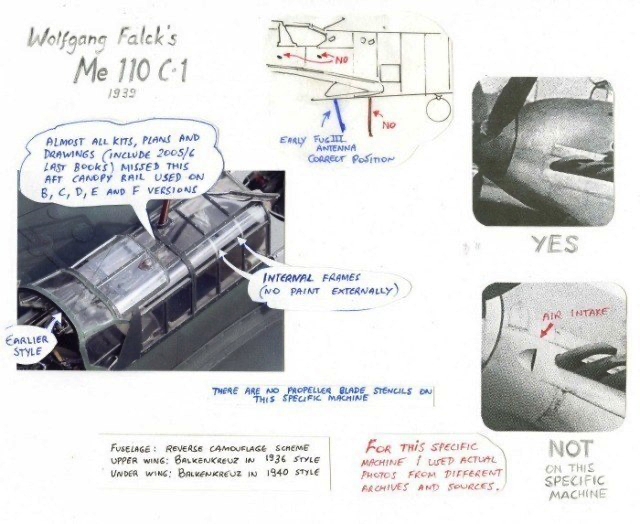 Wolfgang Falck's
Me 110 C-1
1939
NO
EARLY FUG III
ANTENNA
CORRECT POSITION
NO
ALMOST ALL KITS, PLANS AND
DRAWINGS (INCLUDE 2005/6
LAST BOOKS) MISSED THIS
AFT CANOPY RAIL USED ON
B, C, D, E AND F VERSIONS
INTERNAL FRAMES
(NO PAINT EXTERNALLY)
EARLIER
STYLE
YES
AIR INTAKE
NOT
ON THIS
SPECIFIC
MACHINE
THERE ARE NO PROPELLER BLADE STENCILS ON
THIS SPECIFIC MACHINE
FUSELAGE: REVERSE CAMOUFLAGE SCHEME
UPPER WING: BALKENKREUZ IN 1936 STYLE
UNDER WING: BALKENKREUZ IN 1940 STYLE
FOR THIS SPECIFIC
MACHINE I USED ACTUAL
PHOTOS FROM DIFFERENT
ARCHIVES AND SOURCES.